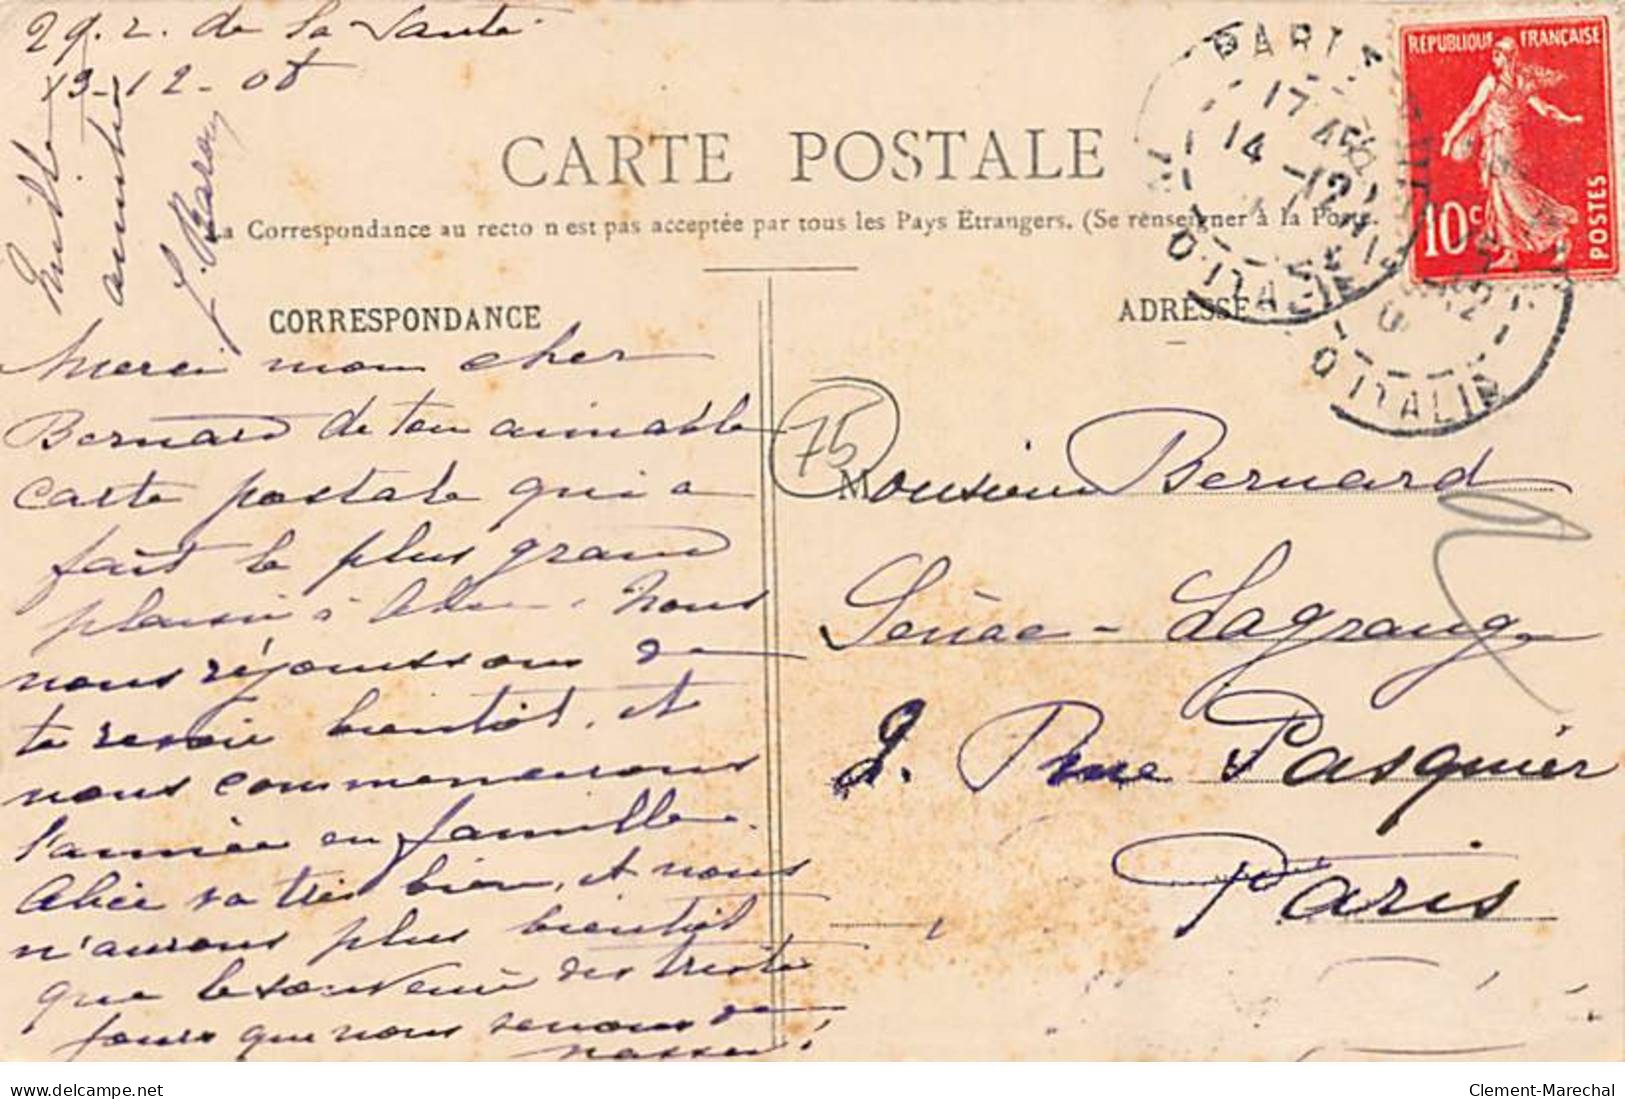 29. r. de la Santé
13-12-08
Mille
amitiés
CARTE POSTALE
La Correspondance au recto n'est pas acceptée par tous les Pays Étrangers. (Se renseigner à la Poste.
CORRESPONDANCE
ADRESSE
REPUBLIQUE FRANÇAISE
10c
POSTES
PARIS
17 45
14 -12
D'ITALIE
D'ITALIE
Merci mon cher
Bernard de ton aimable
carte postale qui a
fait le plus grand
plaisir à Alice. Nous
nous réjouissons de
te revoir bientôt, et
nous commencerons
l'année en famille.
Alice va très bien, et nous
n'aurons plus bientôt
que le souvenir des tristes
jours que nous venons de
passer!
75
Monsieur Bernard
Sénac-Lagrange
2. Rue Pasquier
Paris
delcampe.net
Clement-Marechal